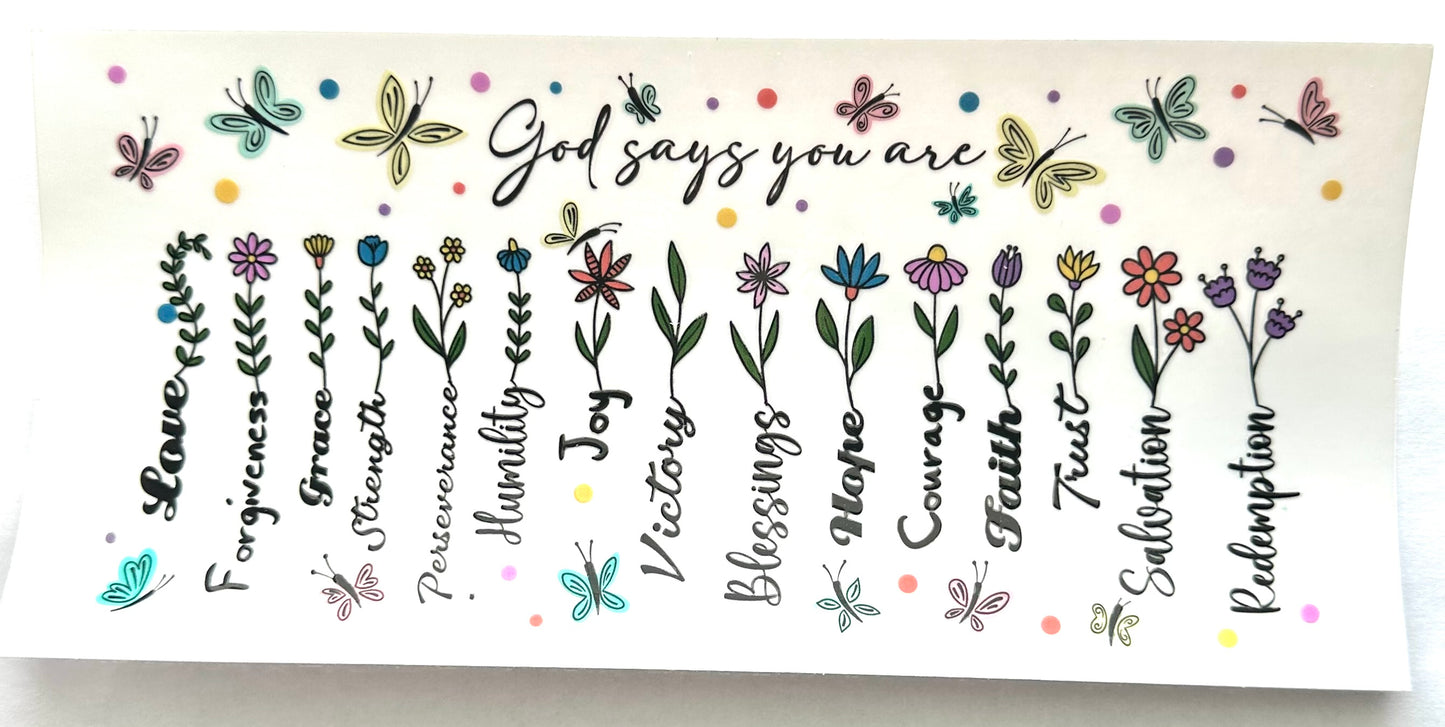 God says you are
Love
Forgiveness
Grace
Strength
Perseverance
Humility
Joy
Victory
Blessings
Hope
Courage
Faith
Trust
Salvation
Redemption